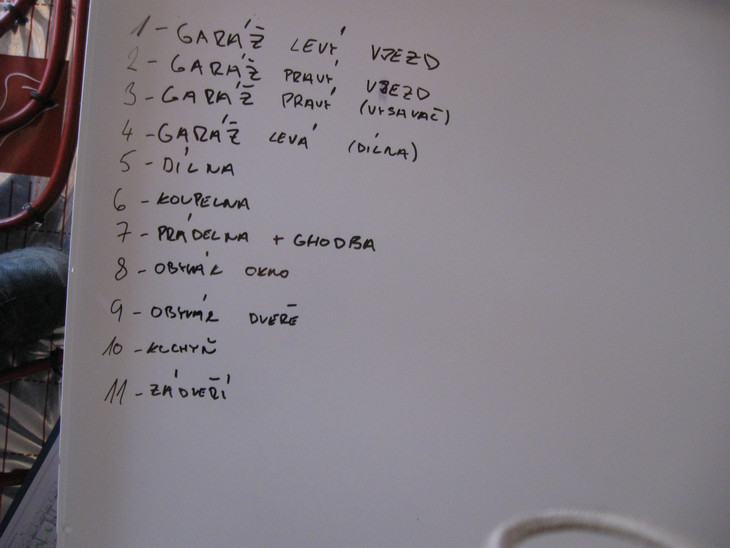 1 - GARÁŽ LEVÝ VJEZD
2 - GARÁŽ PRAVÝ VJEZD
3 - GARÁŽ PRAVÝ (VYSAVAČ)
4 - GARÁŽ LEVÁ (DÍLNA)
5 - DÍLNA
6 - KOUPELNA
7 - PRÁDELNA + CHODBA
8 - OBÝVÁK OKNO
9 - OBÝVÁK DVEŘE
10 - KUCHYŇ
11 - ZÁDVEŘÍ